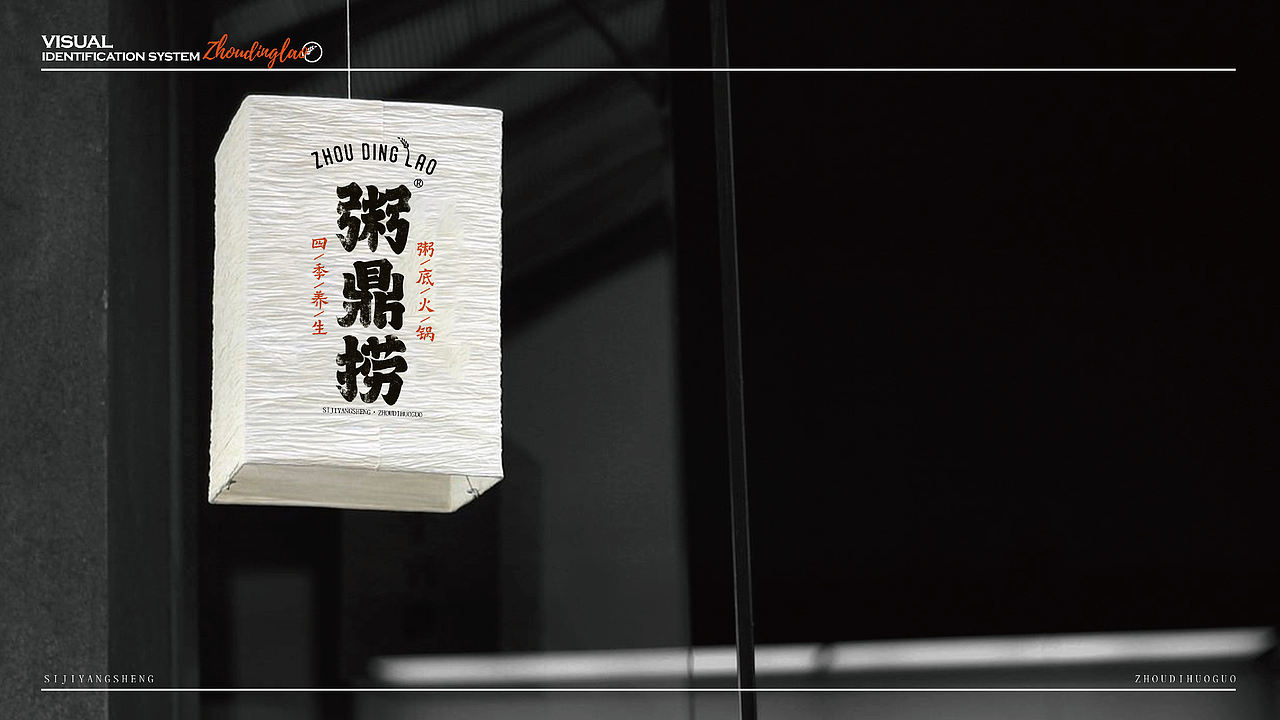 VISUAL
IDENTIFICATION SYSTEM Zhoudinglao
ZHOU DING LAO
®
粥鼎捞
粥/底/火/锅
四/季/养/生
SIJIYANGSHENG·ZHOUDIHUOGUO
SIJIYANGSHENG
ZHOUDIHUOGUO